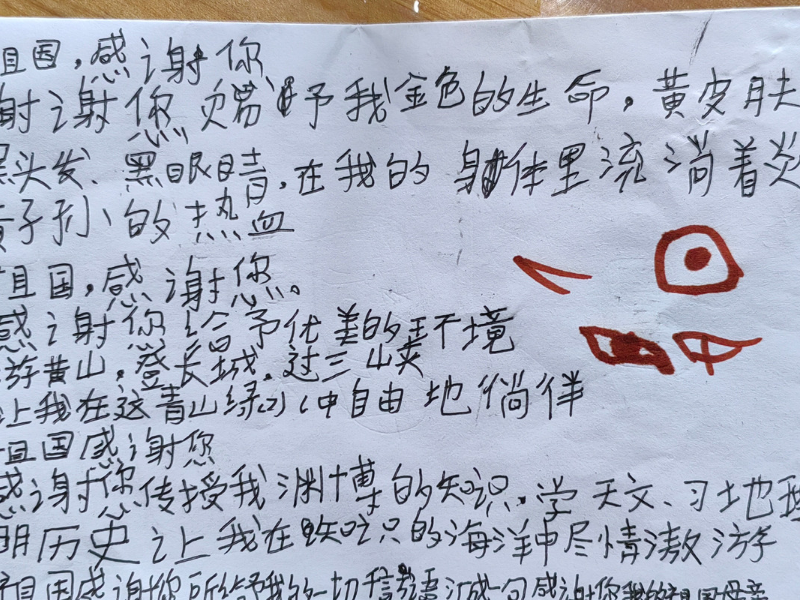 祖国，感谢你
谢谢您赐予我金色的生命，黄皮肤
黑头发、黑眼睛，在我的身体里流淌着炎
黄子孙的热血
祖国，感谢您。
感谢您给予优美的环境
游黄山，登长城，过三峡
让我在这青山绿水中自由地徜徉
祖国感谢您
感谢您传授我渊博的知识，学天文、习地理
明历史让我在知识的海洋中尽情遨游
祖国感谢你所给予我的一切千言万语汇成一句感谢你我的祖国母亲